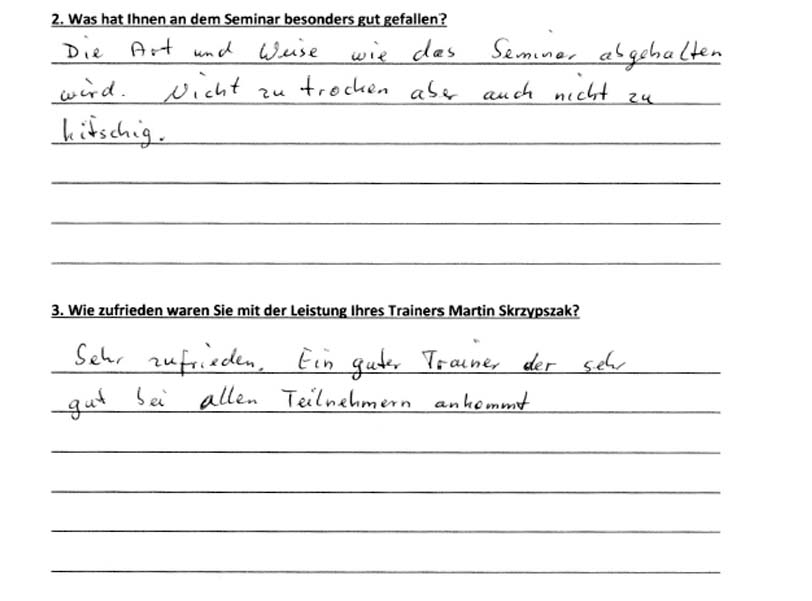 2. Was hat Ihnen an dem Seminar besonders gut gefallen?
Die Art und Weise wie das Seminar abgehalten
wird. Nicht zu trocken aber auch nicht zu
kitschig.
3. Wie zufrieden waren Sie mit der Leistung Ihres Trainers Martin Skrzypszak?
Sehr zufrieden. Ein guter Trainer der sehr
gut bei allen Teilnehmern ankommt